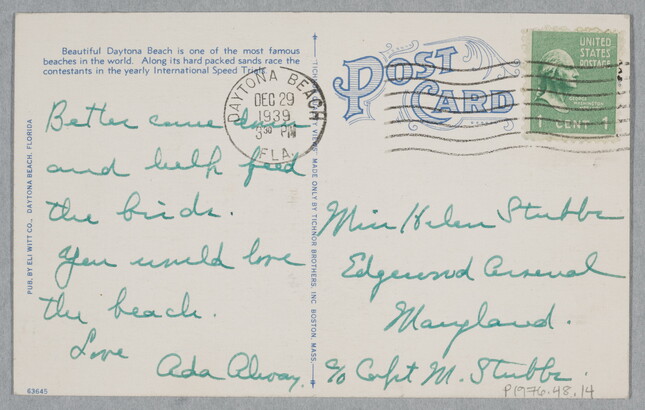 Beautiful Daytona Beach is one of the most famous
beaches in the world. Along its hard packed sands race the
contestants in the yearly International Speed Trials.
Better come down
and help feed
the birds.
You would love
the beach.
Love
Ada Alway.
63645
PUB. BY ELI WITT CO., DAYTONA BEACH, FLORIDA
MADE ONLY BY TICHNOR BROTHERS, INC. BOSTON, MASS.
DAYTONA BEACH
DEC 29
1939
PM
FLA.
POST
CARD
UNITED
STATES
POSTAGE
GEORGE
WASHINGTON
1 CENT 1
Miss Helen Stubbs
Edgewood Arsenal
Maryland.
c/o Capt M. Stubbs.
P1976.48.14